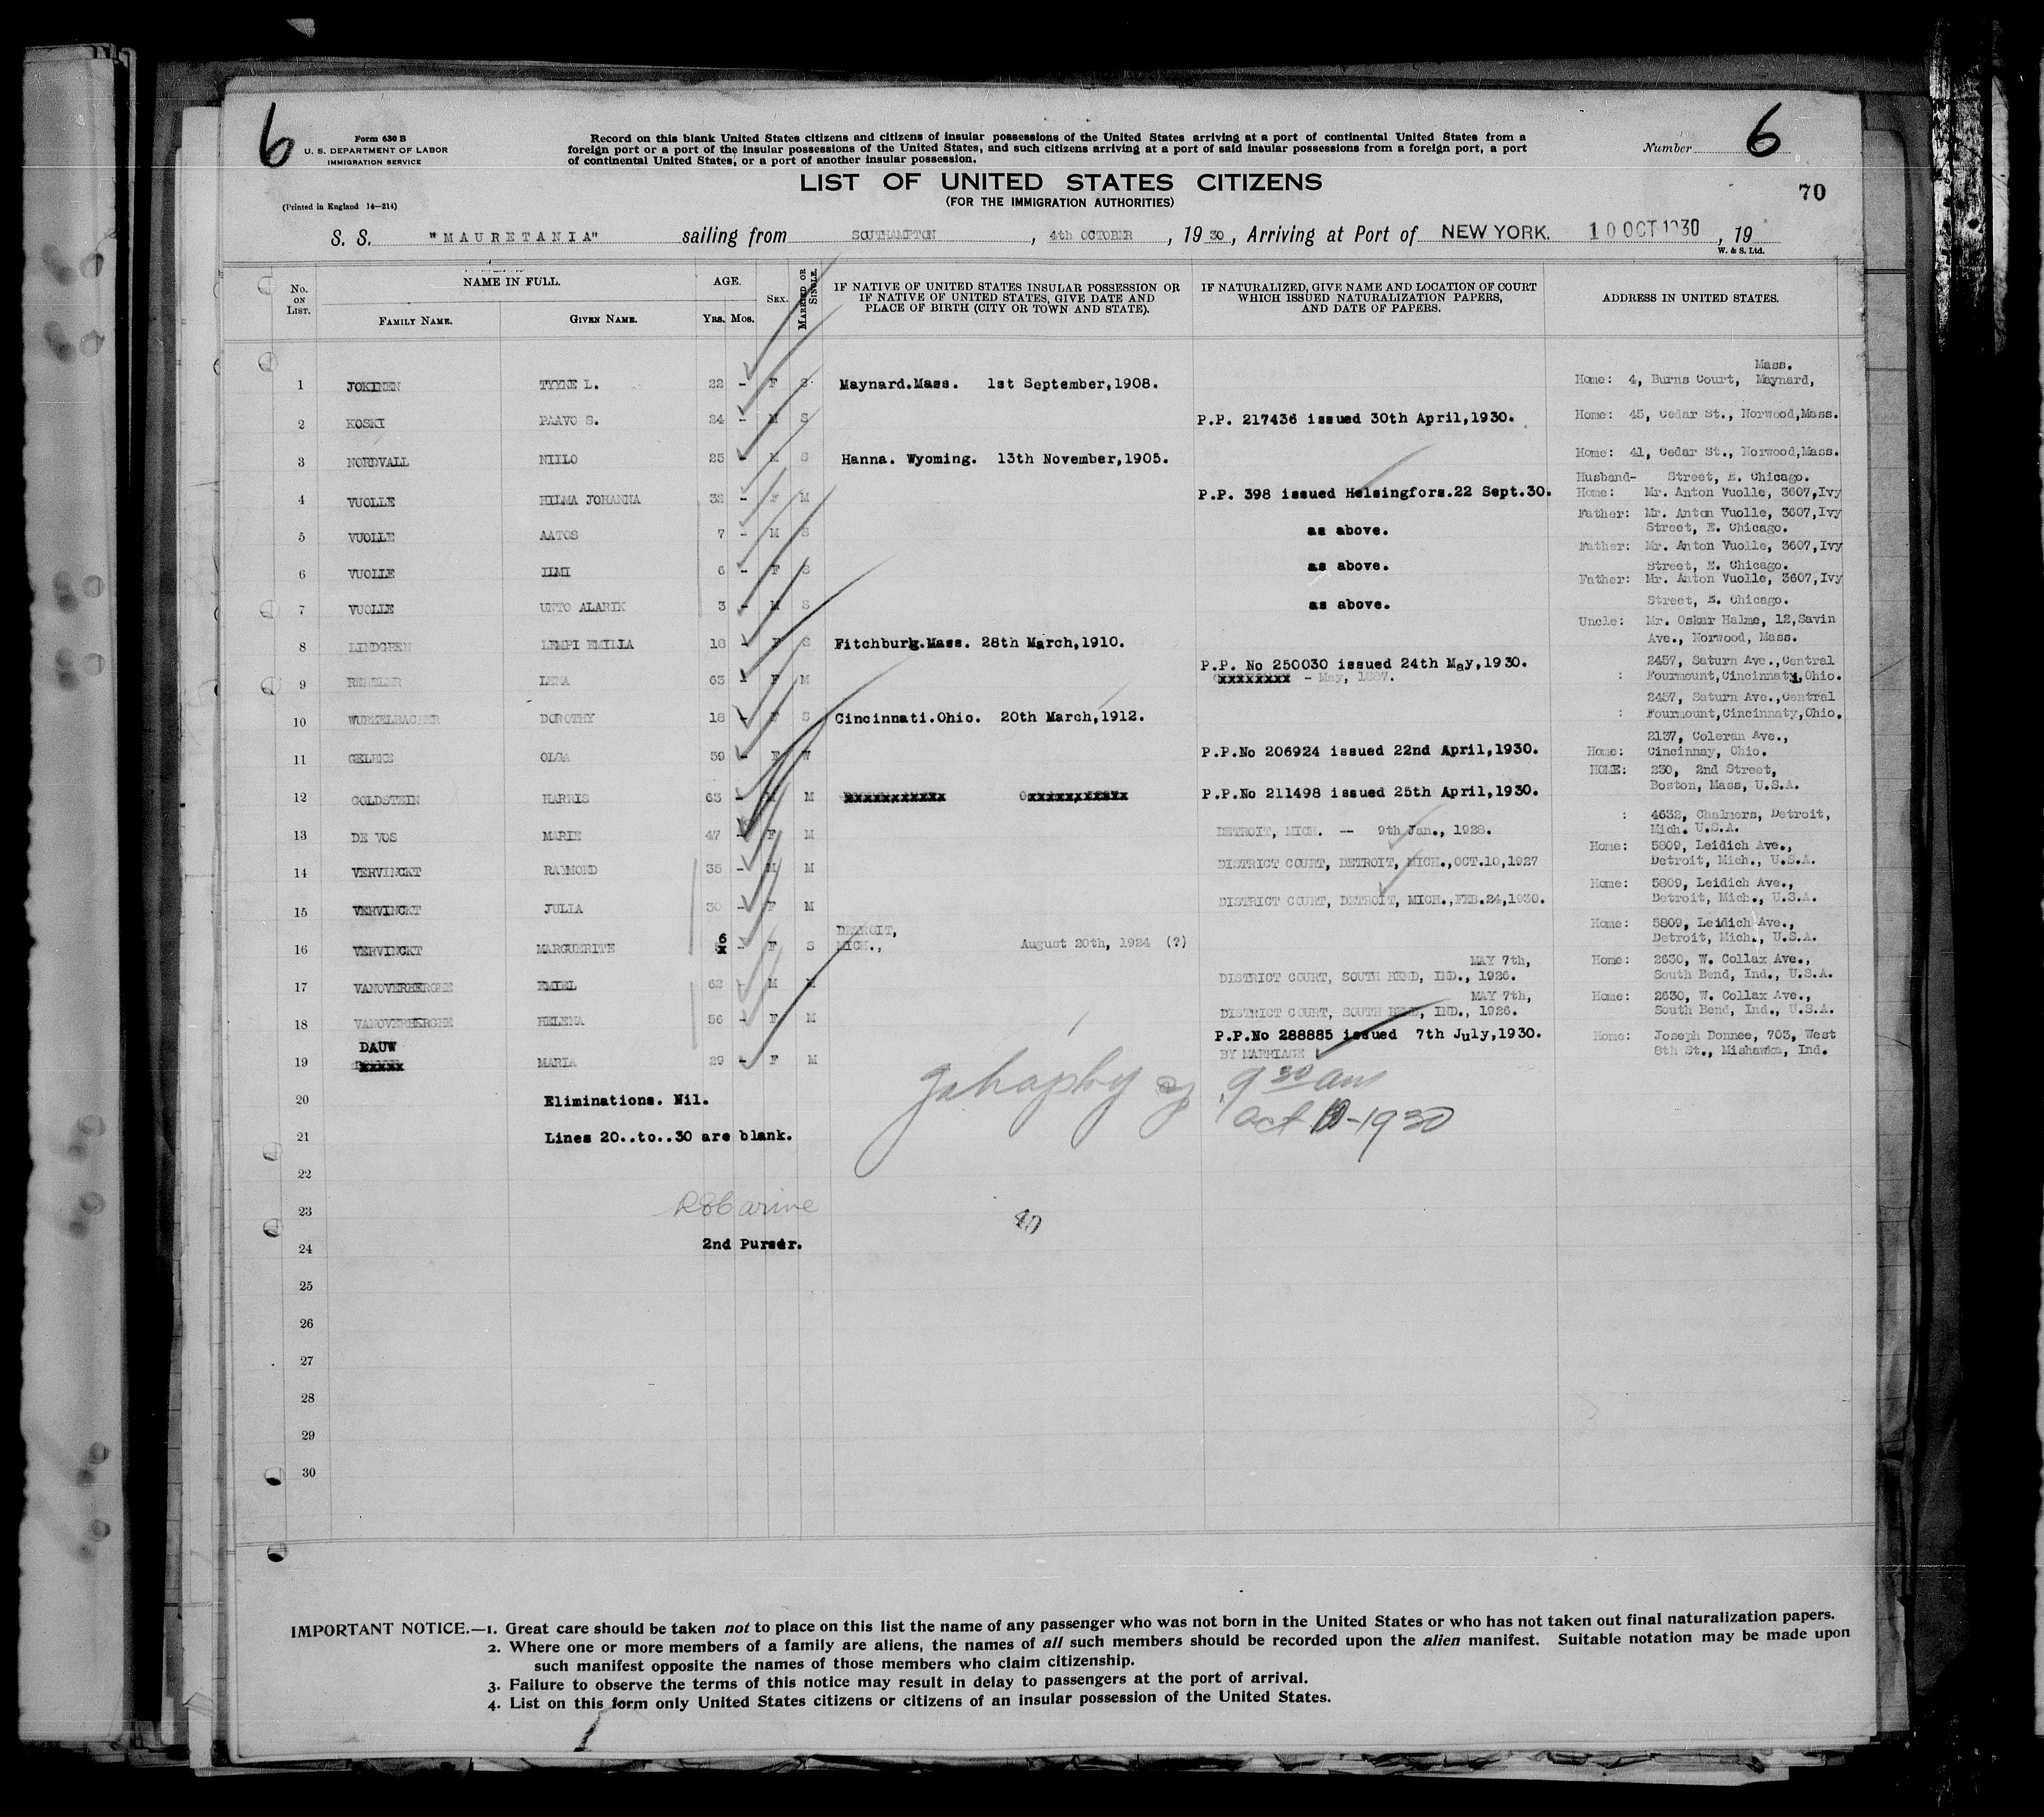 6
Form 630 B
U. S. DEPARTMENT OF LABOR
IMMIGRATION SERVICE
(Printed in England 14—214)
Record on this blank United States citizens and citizens of insular possessions of the United States arriving at a port of continental United States from a
foreign port or a port of the insular possessions of the United States, and such citizens arriving at a port of said insular possessions from a foreign port, a port
of continental United States, or a port of another insular possession.
Number 6
LIST OF UNITED STATES CITIZENS
(FOR THE IMMIGRATION AUTHORITIES)
70
S. S. "MAURETANIA" sailing from SOUTHAMPTON, 4th OCTOBER, 1930, Arriving at Port of NEW YORK. 10 OCT 1930, 19
W. & S. Ltd.
No. ON LIST. NAME IN FULL. FAMILY NAME. GIVEN NAME. AGE. Yrs. Mos. SEX. MARRIED OR SINGLE. IF NATIVE OF UNITED STATES INSULAR POSSESSION OR IF NATIVE OF UNITED STATES, GIVE DATE AND PLACE OF BIRTH (CITY OR TOWN AND STATE). IF NATURALIZED, GIVE NAME AND LOCATION OF COURT WHICH ISSUED NATURALIZATION PAPERS, AND DATE OF PAPERS. ADDRESS IN UNITED STATES.
1 JOKINEN TYYNE L. 22 - F S Maynard.Mass. 1st September,1908. Home: 4, Burns Court, Maynard, Mass.
2 KOSKI PAAVO S. 24 - M S P.P. 217436 issued 30th April,1930. Home: 45, Cedar St., Norwood,Mass.
3 NORDVALL NIILO 25 - M S Hanna. Wyoming. 13th November,1905. Home: 41, Cedar St., Norwood,Mass.
4 VUOLLE HILMA JOHANNA 32 - F M P.P. 398 issued Helsingfors.22 Sept.30. Husband- Home: Mr. Anton Vuolle, 3607,Ivy Street, E. Chicago.
5 VUOLLE AATOS 7 - M S as above. Father: Mr. Anton Vuolle, 3607,Ivy Street, E. Chicago.
6 VUOLLE ILMI 6 - F S as above. Father: Mr. Anton Vuolle, 3607,Ivy Street, E. Chicago.
7 VUOLLE UNTO ALARIK 3 - M S as above. Father: Mr. Anton Vuolle, 3607,Ivy Street, E. Chicago.
8 LINDGREN LEMPI EMILIA 18 - F S Fitchburg.Mass. 28th March,1910. Uncle: Mr. Oskar Halme, 12,Savin Ave., Norwood, Mass.
9 LENA 63 - F M P.P. No 250030 issued 24th May,1930. xxxxxxxx - May, 1887. : 2457, Saturn Ave.,Central Fourmount,Cincinnati,Ohio.
10 WURZELBACHER DOROTHY 18 - F S Cincinnati.Ohio. 20th March,1912. : 2457, Saturn Ave.,Central Fourmount,Cincinnaty,Ohio.
11 GELHKE OLGA 59 - F W P.P.No 206924 issued 22nd April,1930. Home: 2137, Coleran Ave., Cincinnay, Ohio.
12 GOLDSTEIN HARRIS 63 - M M xxxxxxxxxxx xxxxxxxxxxx P.P.No 211498 issued 25th April,1930. HOME: 230, 2nd Street, Boston, Mass, U.S.A.
13 DE VOS MARIE 47 - F M DETROIT, MICH. -- 9th Jan., 1928. : 4632, Chalmers, Detroit, Mich. U.S.A.
14 VERVINCKT RAYMOND 35 - M M DISTRICT COURT, DETROIT, MICH.,OCT.10,1927 Home: 5809, Leidich Ave., Detroit, Mich., U.S.A.
15 VERVINCKT JULIA 30 - F M DISTRICT COURT, DETROIT, MICH.,FEB.24,1930. Home: 5809, Leidich Ave., Detroit, Mich., U.S.A.
16 VERVINCKT MARGUERITE 6 - F S DETROIT, MICH., August 20th, 1924 (?) Home: 5809, Leidich Ave., Detroit, Mich., U.S.A.
17 VANOVERBERGHE EMIEL 62 - M M DISTRICT COURT, SOUTH BEND, IND., MAY 7th, 1926. Home: 2630, W. Collax Ave., South Bend, Ind., U.S.A.
18 VANOVERBERGHE HELENA 56 - F M DISTRICT COURT, SOUTH BEND, IND., MAY 7th, 1926. Home: 2630, W. Collax Ave., South Bend, Ind., U.S.A.
19 DAUW xxxxx MARIA 29 - F M P.P.No 288885 issued 7th July,1930. BY MARRIAGE Home: Joseph Donnee, 703, West 8th St., Mishawka, Ind.
20 Eliminations. Nil.
9 30 am
Oct 10-1930
21 Lines 20..to..30 are blank.
22
23
24 2nd Purser.
25
26
27
28
29
30
IMPORTANT NOTICE.—1. Great care should be taken not to place on this list the name of any passenger who was not born in the United States or who has not taken out final naturalization papers.
2. Where one or more members of a family are aliens, the names of all such members should be recorded upon the alien manifest. Suitable notation may be made upon
such manifest opposite the names of those members who claim citizenship.
3. Failure to observe the terms of this notice may result in delay to passengers at the port of arrival.
4. List on this form only United States citizens or citizens of an insular possession of the United States.